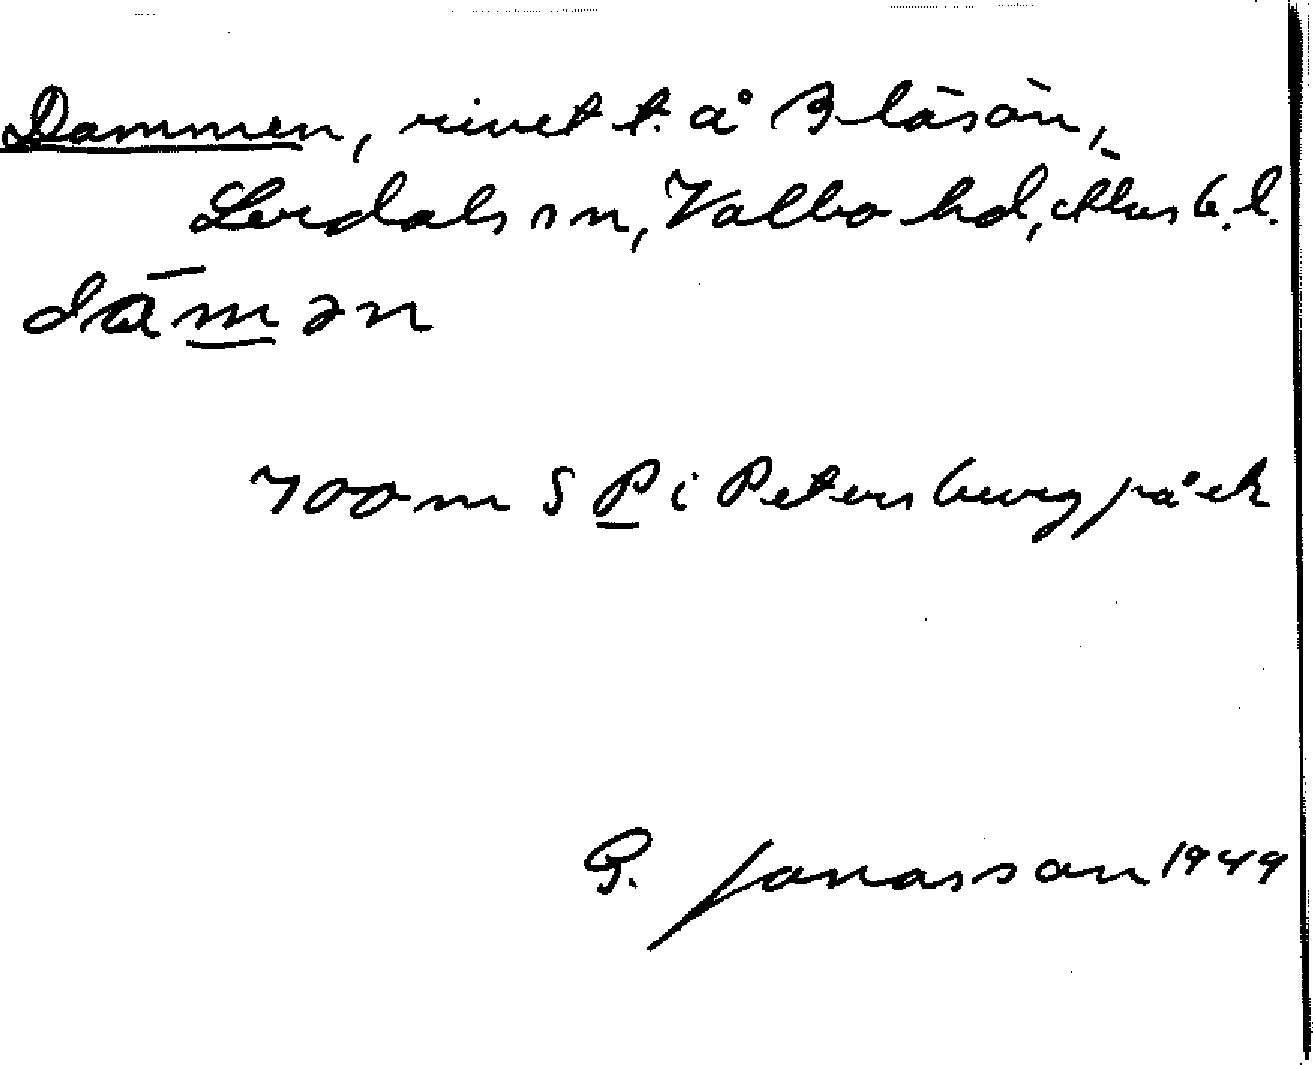 Dammen, rivet t. å Bläsän,
Lerdals sn, Valbo hd, Älvsb. l.
dämən
700 m S P i Petersberg på ek
G. Jonasson 1949